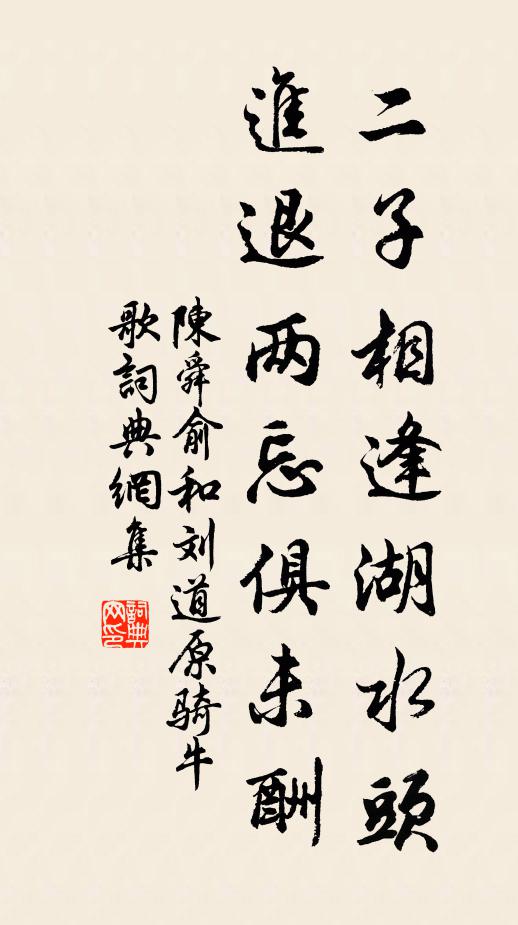 二子相逢湖水頭
進退两忘俱未酬
陳舜俞和刘道原骑牛
歌詞典網集
詞典网印